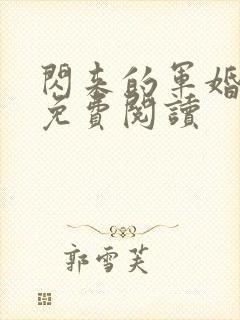 閃來的軍婚
免費閱讀
郭雪芙